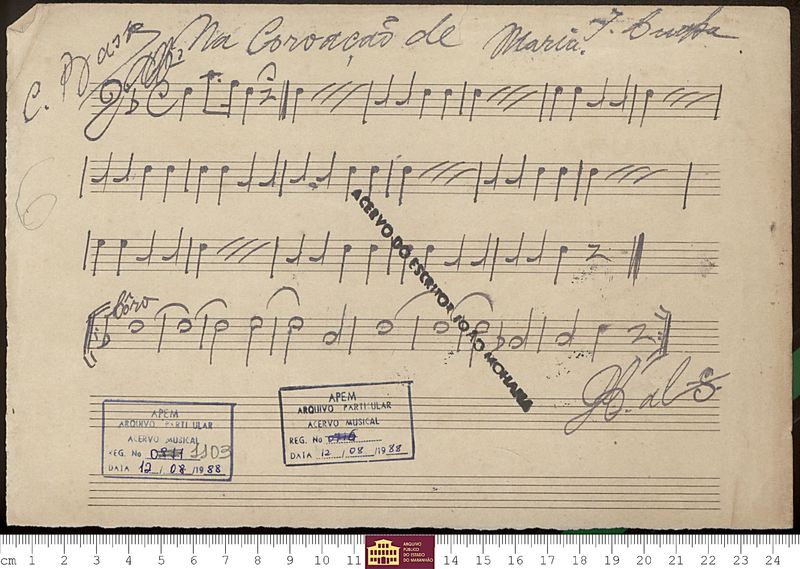 C. Baixo Na Coroação de Maria.
6
ACERVO DO ESCRITOR JOÃO MOHANA
Côro
al S.
APEM
ARQUIVO PARTICULAR
ACERVO MUSICAL
REG. No 0811 1103
DATA 12 / 08 / 1988
APEM
ARQUIVO PARTICULAR
ACERVO MUSICAL
REG. No 0716
DATA 12 / 08 / 1988
cm 1 2 3 4 5 6 7 8 9 10 11 12 14 15 16 17 18 19 20 21 22 23 24
ARQUIVO
PÚBLICO
DO ESTADO
DO MARANHÃO